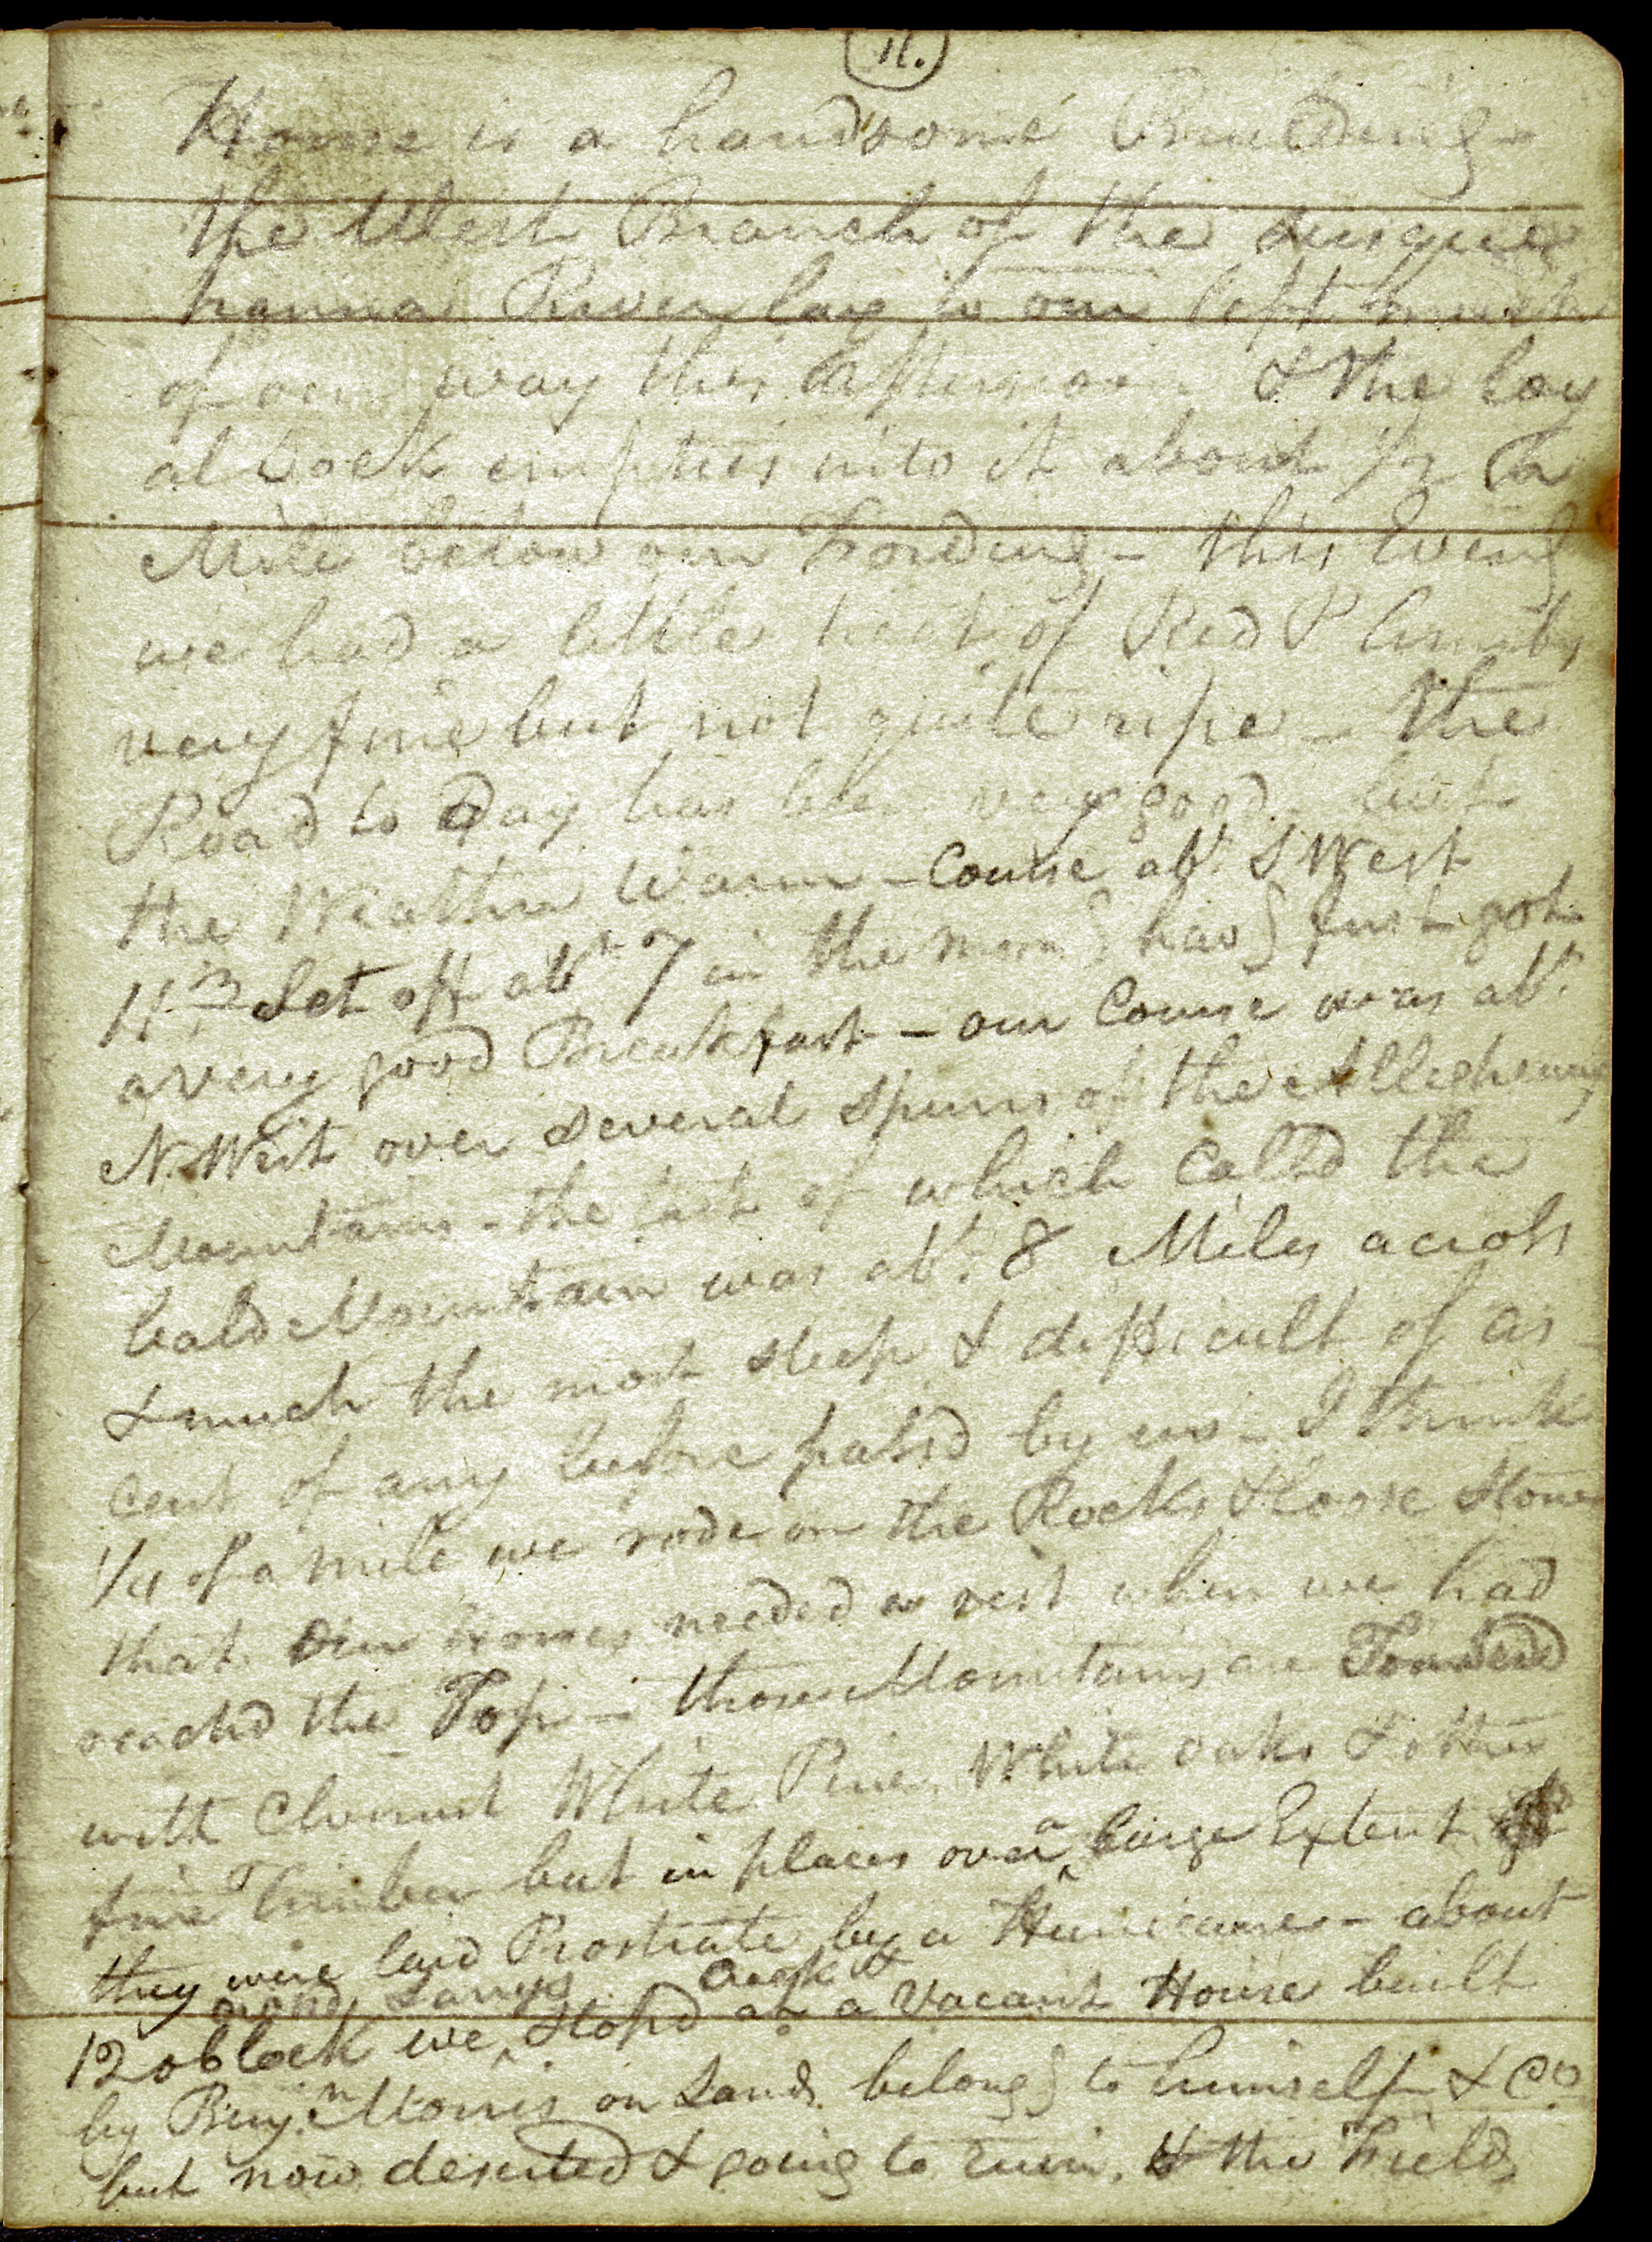 11.
House is a handsome Building -
the West Branch of the Susque
hanna River lay to our left much
of our way this Afternoon & the Loy
al Sock empties into it about 1/2 a
Mile below our Fording - this Eveng
we had a little treat of Red Plumbs
very fine but not quite ripe - the
Road to Day has been very good, but
the Weather Warm - Course abt. S West
11th Set off abt 7 in the morng havg first got
a very good Breakfast - our Course was abt.
N. West over several spurs of the Alleghenny
Mountains - the last of which calld the
bald Mountain was abt. 8 Miles across
& much the most steep & difficult of as-
cent of any before passd by us - I think
1/4 of a mile we rode on the Rocks & loose Stones
that our horses needed a rest when we had
reachd the Top - those Mountains are
with Chesnut White Pine, White oaks & other
fine Timber but in places over a large Extent
they were laid Prostrate by a Hurricane - about
12 oClock we crossd Larrys Creek & stopd at a Vacant House built
by Benjn. Morris on Lands belongg to himself & Co.
but now deserted & going to ruin, & the Fields